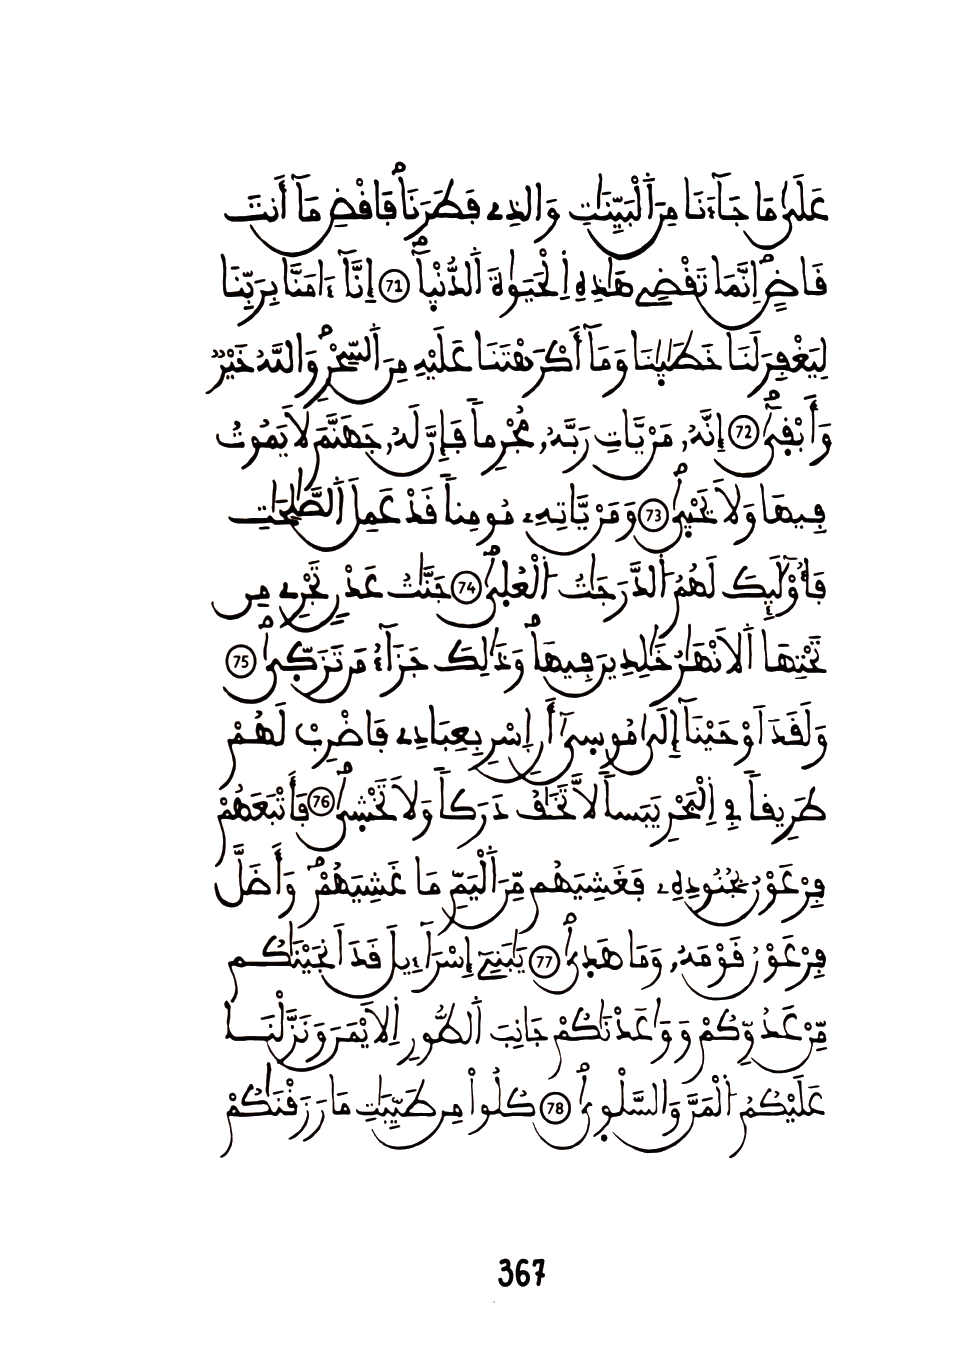 عَلَىٰ مَا جَآءَنَا مِنَ اَ۬لْبَيِّنَٰتِ وَالذِے فَطَرَنَاۖ فَاقْضِ مَآ أَنتَ
فَاضٍۖ اِنَّمَا تَقْضِے هَٰذِهِ اِ۬لْحَيَوٰةَ اَ۬لدُّنْي۪آۖ 71 إِنَّآ ءَامَنَّا بِرَبِّنَا
لِيَغْفِرَ لَنَا خَطَٰيَٰنَا وَمَآ أَكْرَهْتَنَا عَلَيْهِ مِنَ اَ۬لسِّحْرِۖ وَاللَّهُ خَيْرٞ
وَأَبْق۪ىٰٓۖ 72 إِنَّهُۥ مَنْ يَّاتِ رَبَّهُۥ مُجْرِماٗ فَإِنَّ لَهُۥ جَهَنَّمَ لَا يَمُوتُ
فِيهَا وَلَا يَحْي۪ىٰۖ 73 وَمَنْ يَّاتِهِۦ مُومِناٗ قَدْ عَمِلَ اَ۬لصَّٰلِحَٰتِ
فَأُوْلَٰٓئِكَ لَهُمُ اُ۬لدَّرَجَٰتُ اُ۬لْعُل۪ىٰۖ 74 جَنَّٰتُ عَدْنٖ تَجْرِے مِن
تَحْتِهَا اَ۬لَانْهَٰرُ خَٰلِدِينَ فِيهَاۖ وَذَٰلِكَ جَزَآءُ مَن تَزَكّ۪ىٰۖ 75
وَلَقَدَ اَوْحَيْنَآ إِلَىٰ مُوس۪ىٰٓ أَنِ اِسْرِ بِعِبَادِے فَاضْرِبْ لَهُمْ
طَرِيقاٗ فِے اِ۬لْبَحْرِ يَبَساٗ لَّا تَخَٰفُ دَرَكاٗ وَلَا تَخْش۪ىٰۖ 76 فَأَتْبَعَهُمْ
فِرْعَوْنُ بِجُنُودِهِۦ فَغَشِيَهُم مِّنَ اَ۬لْيَمِّ مَا غَشِيَهُمْۖ وَأَضَلَّ
فِرْعَوْنُ قَوْمَهُۥ وَمَا هَد۪ىٰۖ 77 يَٰبَنِےٓ إِسْرَآءِيلَ قَدَ اَنجَيْنَٰكُم
مِّنْ عَدُوِّكُمْ وَوَٰعَدْنَٰكُمْ جَانِبَ اَ۬لطُّورِ اِ۬لَايْمَنَ وَنَزَّلْنَا
عَلَيْكُمُ اُ۬لْمَنَّ وَالسَّلْو۪ىٰۖ 78 كُلُواْ مِن طَيِّبَٰتِ مَا رَزَقْنَٰكُمْ
367